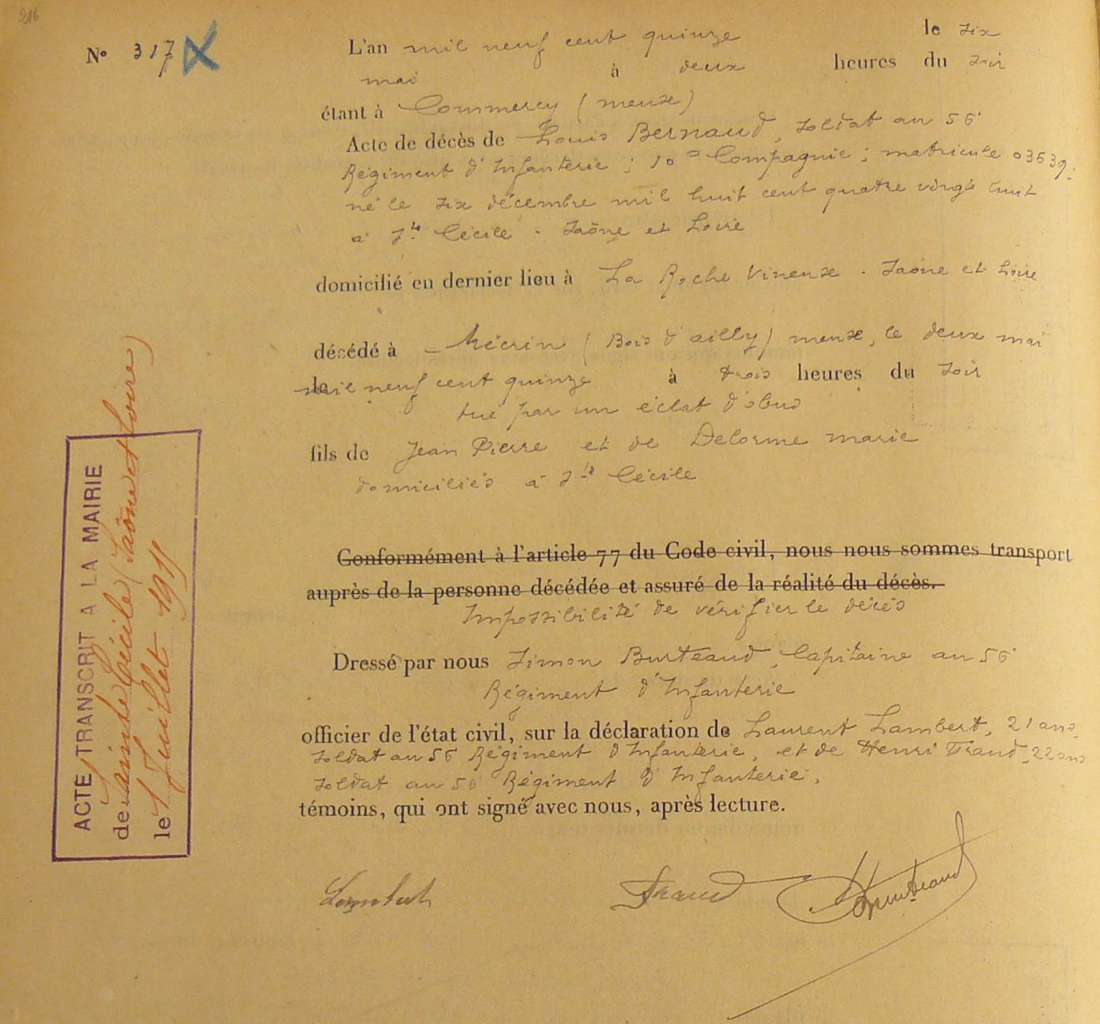 216
N° 317
L'an mil neuf cent quinze le six
mai à deux heures du soir
étant à Commercy (meuse)
Acte de décès de Louis Bernaud, soldat au 56e
Régiment d'Infanterie ; 10e Compagnie ; matricule 03639 ;
né le six décembre mil huit cent quatre vingt huit
à Ste Cécile - Saône et Loire
domicilié en dernier lieu à La Roche Vineuse - Saône et Loire
décédé à Mécrin (Bois d'ailly) meuse, le deux mai
mil neuf cent quinze à trois heures du soir
tué par un éclat d'obus
fils de Jean Pierre et de Delorme marie
domiciliés à Ste Cécile
Conformément à l'article 77 du Code civil, nous nous sommes transport
auprès de la personne décédée et assuré de la réalité du décès.
Impossibilité de vérifier le décès
Dressé par nous Simon Burteaud, Capitaine au 56e
Régiment d'Infanterie
officier de l'état civil, sur la déclaration de Laurent Lambert, 21 ans,
soldat au 56e Régiment d'Infanterie, et de Henri Fraud 22 ans
soldat au 56e Régiment d'Infanterie,
témoins, qui ont signé avec nous, après lecture.
Lambert Fraud
ACTE TRANSCRIT A LA MAIRIE
de Sainte Cécile (Saône et Loire)
le Juillet 1915